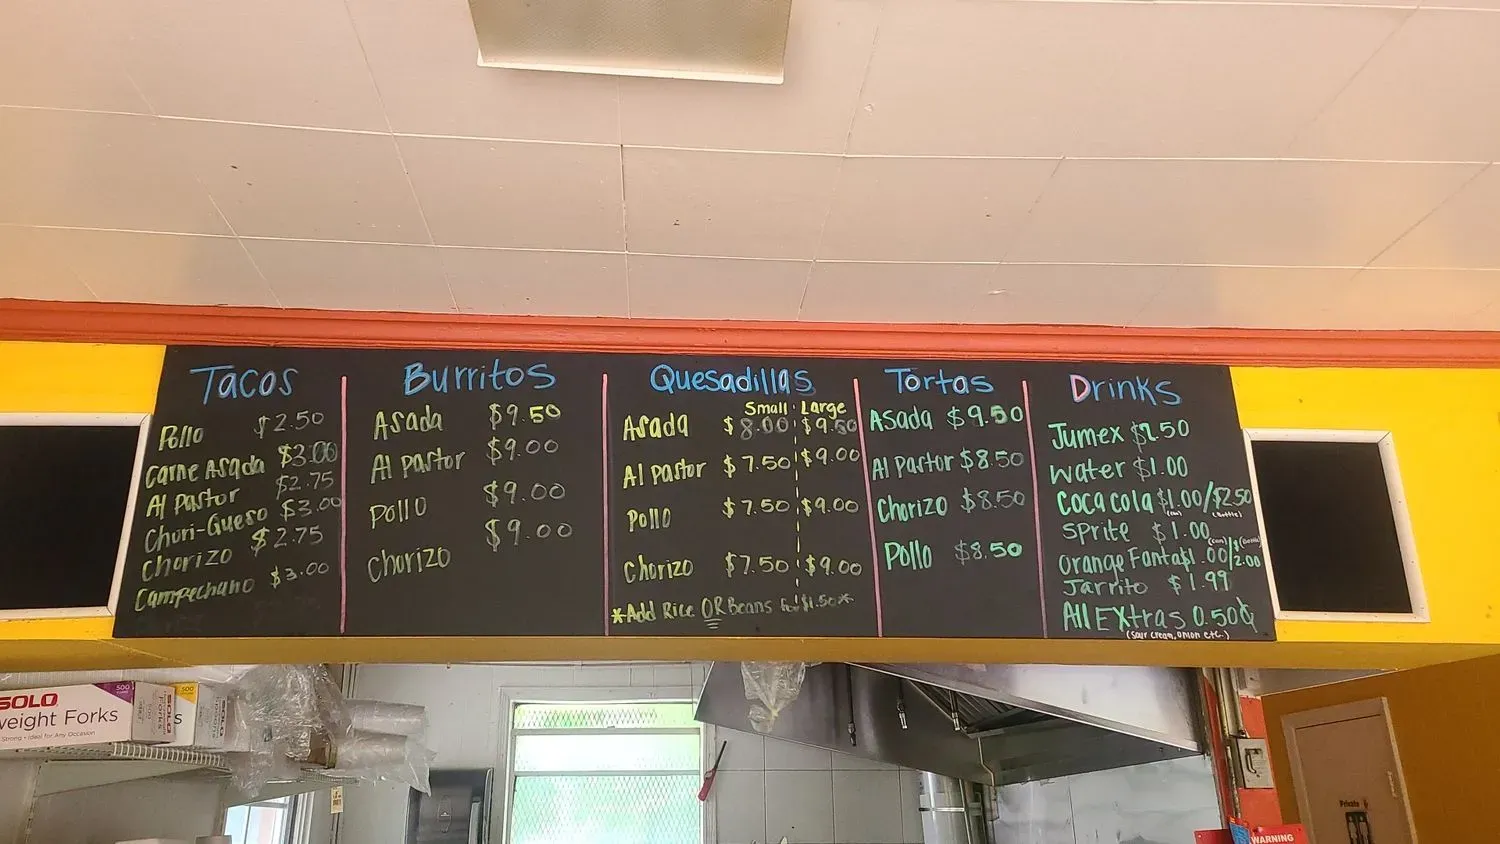 Tacos
Pollo $2.50
Carne Asada $3.00
Al Pastor $2.75
Chori-Queso $3.00
Chorizo $2.75
Campechano $3.00
Burritos
Asada $9.50
Al Pastor $9.00
Pollo $9.00
Chorizo $9.00
Quesadillas
Small Large
Asada $8.00 $9.50
Al Pastor $7.50 $9.00
Pollo $7.50 $9.00
Chorizo $7.50 $9.00
*Add Rice OR Beans for $1.50*
Tortas
Asada $9.50
Al Pastor $8.50
Chorizo $8.50
Pollo $8.50
Drinks
Jumex $1.50
Water $1.00
Coca cola $1.00/$2.50
(can) (Bottle)
Sprite $1.00
(can) (Bottle)
Orange Fanta $1.00/$2.00
Jarrito $1.99
All Extras 0.50¢
(Sour cream, onion etc.)
SOLO
weight Forks
Strong • Ideal for Any Occasion
500
SOLO
Forks
500
s
Private
WARNING